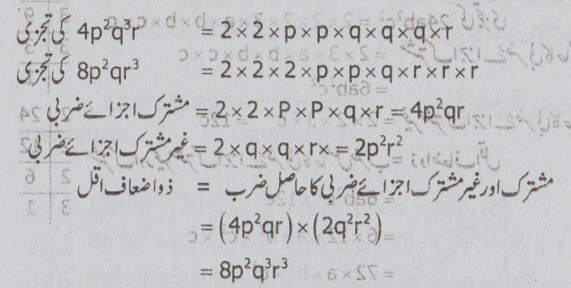 4p²q³r کی تجزی = 2×2×p×p×q×q×q×r
8p²qr³ کی تجزی = 2×2×2×p×p×q×r×r×r
مشترک اجزائے ضربی = 2×2×P×P×q×r = 4p²qr
غیر مشترک اجزائے ضربی = 2×q×q×r× = 2p²r²
مشترک اور غیر مشترک اجزائے ضربی کا حاصل ضرب = ذواضعاف اقل
= (4p²qr)×(2q²r²)
= 8p²q³r³